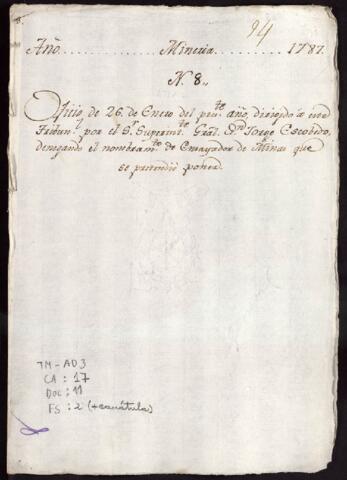 94
Año. Mineria. 1787.
N. 8.
Ofiio de 26. de Enero del pte. año, dirigido à este
Tribunl. por el Sr. Superinte. Gral. Dn. Jorge Escobedo,
denegando el nombramto. de Ensayador de Minas que
se pretendió poner
TM-AD3
CA: 17
DOC: 11
FS: 2 (+carátula)